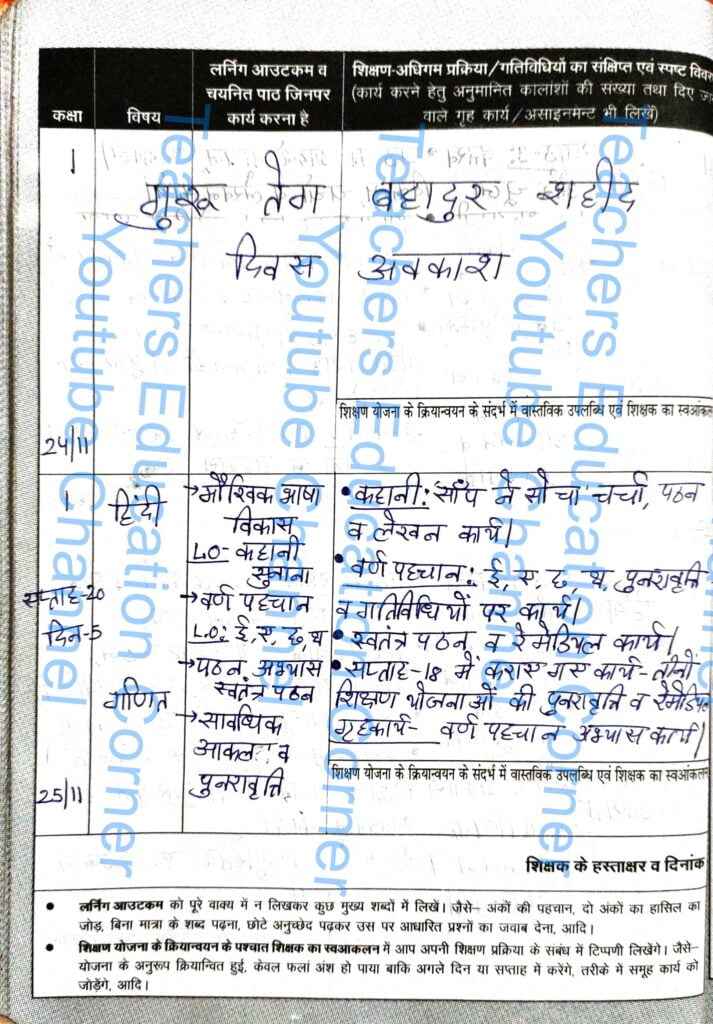 लर्निंग आउटकम व
चयनित पाठ जिनपर
कार्य करना है
शिक्षण-अधिगम प्रक्रिया/गतिविधियों का संक्षिप्त एवं स्पष्ट
(कार्य करने हेतु अनुमानित कालांशों की संख्या तथा दिए
वाले गृह कार्य/असाइनमेन्ट भी लिखें)
कक्षा विषय
1
गुरु तेग बहादुर शहीद
दिवस अवकाश
शिक्षण योजना के क्रियान्वयन के संदर्भ में वास्तविक उपलब्धि एवं शिक्षक का
24/11
1
हिंदी
सप्ताह-20
दिन-5
गणित
25/11
→मौखिक भाषा
विकास
L.O- कहानी
सुनाना
→वर्ण पहचान
L.O: ई, ए, ढ, थ
→पठन अभ्यास
स्वतंत्र पठन
→सावधिक
आकलन व
पुनरावृत्ति
• कहानी: साँप ने सोचा चर्चा, पठन
व लेखन कार्य।
• वर्ण पहचान: ई, ए, ढ, थ, पुनरावृत्ति
व गतिविधियों पर कार्य।
• स्वतंत्र पठन व रेमेडियल कार्य।
• सप्ताह-18 में कराए गए कार्य- तीनों
शिक्षण योजनाओं की पुनरावृत्ति व
गृहकार्य- वर्ण पहचान अभ्यास कार्य।
शिक्षण योजना के क्रियान्वयन के संदर्भ में वास्तविक उपलब्धि एवं शिक्षक का स्वआंकलन
शिक्षक के हस्ताक्षर व दिनांक
• लर्निंग आउटकम को पूरे वाक्य में न लिखकर कुछ मुख्य शब्दों में लिखें। जैसे– अंकों की पहचान, दो अंकों का हासिल का
जोड़, बिना मात्रा के शब्द पढ़ना, छोटे अनुच्छेद पढ़कर उस पर आधारित प्रश्नों का जवाब देना, आदि।
• शिक्षण योजना के क्रियान्वयन के पश्चात शिक्षक का स्वआकलन में आप अपनी शिक्षण प्रक्रिया के संबंध में टिप्पणी लिखेंगे। जैसे–
योजना के अनुरूप क्रियान्वित हुई, केवल फलां अंश हो पाया बाकि अगले दिन या सप्ताह में करेंगे, तरीके में समूह कार्य को
जोड़ेंगे, आदि।
Teachers Education Corner
Youtube Channel
Teachers Education Corner
Youtube Channel
Teachers Education Corner
Youtube Channel